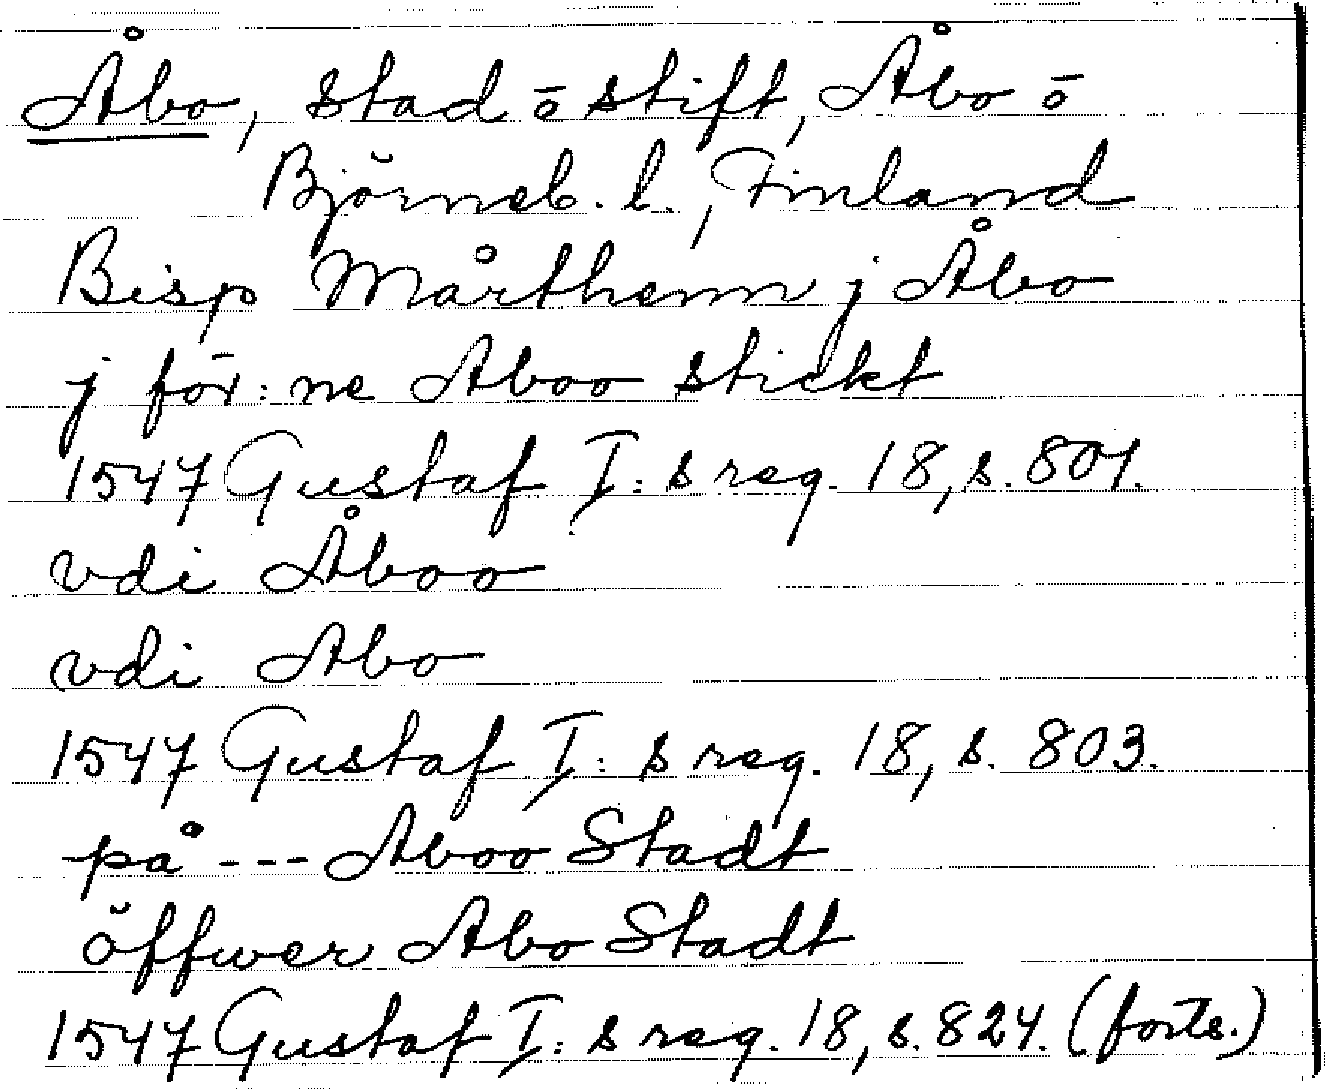 Åbo, stad ō stift, Åbo ō
Björneb. l., Finland
Bisp Mårthenn j Åbo
j för:ne Aboo stickt
1547 Gustaf I:s reg. 18, s. 801.
vdi Åboo
vdi Abo
1547 Gustaf I:s reg. 18, s. 803.
på --- Aboo Stadt
öffwer Abo Stadt
1547 Gustaf I:s reg. 18, s. 824. (forts.)